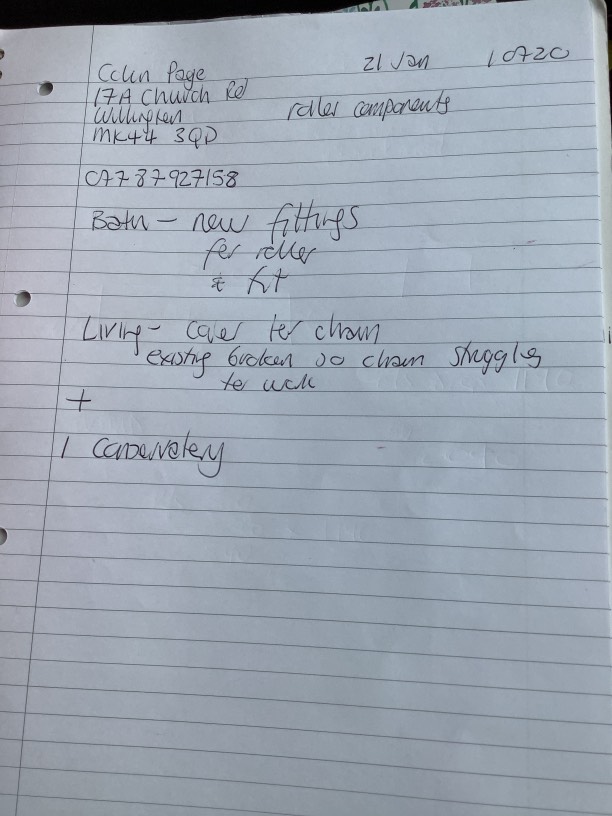 Colin Page 21 Jan 10720
17A Church Rd
Willington roller components
MK44 3QD
07787927158
Bath - new fittings
for roller
& fit
Living - cover for chain
existing broken so chain struggles
to work
+
1 Conservatory